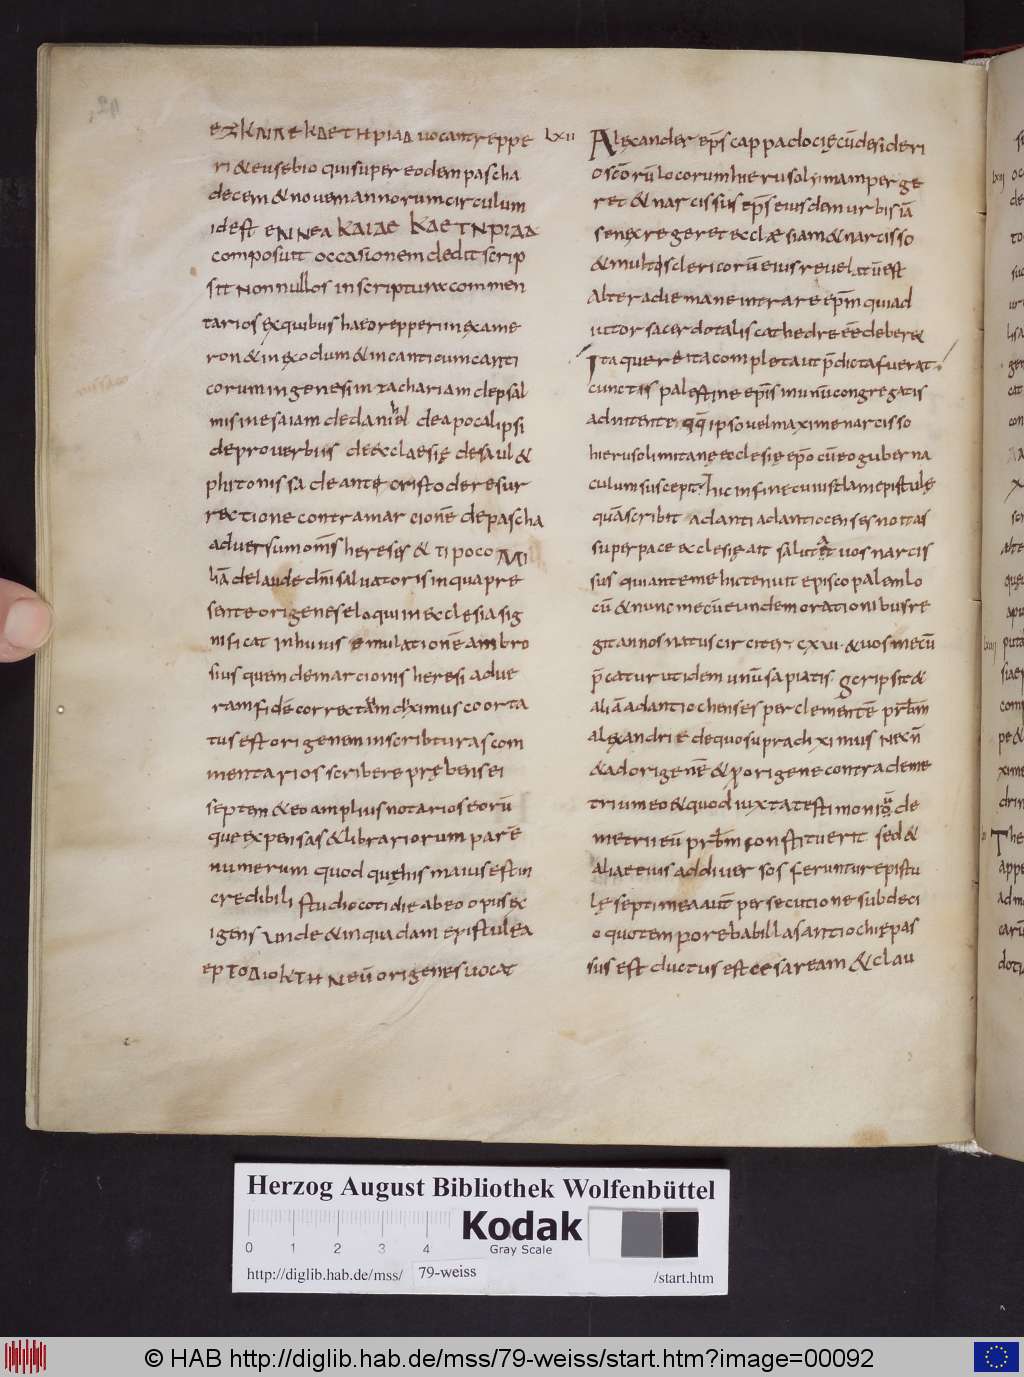 ΕΖΚΑΙΔΕΚΑΕΤΗΡΙΔΑ vocant repperi
ri & eusebio qui super eodem pascha
decem & novem annorum circulum
id est ΕΝΝΕΑ ΚΑΙΔΕ ΚΑΕΤΝΡΙΔΑ
composuit occasionem dedit scrip
sit nonnullos in scripturax commen
tarios ex quibus haec repperi in exame
ron & in exodum & in canticum canti
corum in genesim in zachariam de psal
mis in esaiam de daniel de apocalipsi
de proverbiis de ecclaesię de saul &
phitonissa de ante cristo de resur
rectione contra marcionē de pascha
adversum omīs hereses & tipoco Mi
liā de laude dn̄i salvatoris in qua pre
sente origenes eloqui in ecclesia sig
nificat In huius emulationē ambro
sius quem de marcionis heresi adve
ram fidē correctam diximus coorta
tus est origenem in scribturas com
mentarios scribere prębens ei
septem & eo amplius notarios eorū
que expensas & librariorum parē
numerum quod quę his maius est in
credibili studio cotidie ab eo opus ex
igens Unde & in quadam epistulea
ΕΡΤΟΔΙΟΚΤΗΝ eū origenes vocat
LXII
Alexander ep̄s cappadocię cū desideri
o sc̄orū locorum hierusolimam perge
ret & narcissus ep̄s eiusdem urbis iā
senex regeret ecclæsiam & narcisso
& multis clericorū eius revelatū est
Altera die mane intrare ep̄m qui ad
iutor sacerdotalis cathedre eē deber&
Itaque re ita completa ut p̄dicta fuerat
cunctis palestine ep̄is in unū congregatis
adnitente qq ipso vel maxime narcisso
hierusolimitanę ecclesię ep̄o cū eo guberna
culum suscepit hic in fine cuiusdam epistulę
quā scribit ad anti ad antiocenses noitas
super pace ecclesię ait salutat vos narcis
sus qui ante me hic tenuit episcopalem lo
cū & nunc mecū eundem orationibus re
git annos natus circiter CXVI & vos mecū
p̄catur ut idem unū sapiatis Scripsit &
aliā ad antiochenses per clementē prb̄m
alexandrię de quo supra diximus nec n̄
& ad origenē & p origene contra deme
trium eo & quod iuxta testimoniū de
metrii eū prb̄m constituerit sed &
aliae eius ad diversos feruntur epistu
lę septimea aut̄ persecutione sub deci
o quo tempore babillas antiochię pas
sus est ductus est cesaream & clau
Herzog August Bibliothek Wolfenbüttel
Kodak
Gray Scale
0 1 2 3 4
http://diglib.hab.de/mss/ 79-weiss /start.htm
© HAB http://diglib.hab.de/mss/79-weiss/start.htm?image=00092